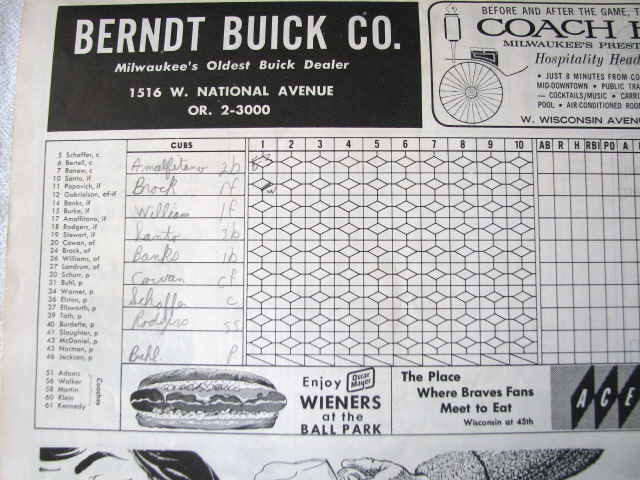 BERNDT BUICK CO.
Milwaukee's Oldest Buick Dealer
1516 W. NATIONAL AVENUE
OR. 2-3000
BEFORE AND AFTER THE GAME, T
COACH
MILWAUKEE'S PREST
Hospitality Head
• JUST 8 MINUTES FROM CO
MID-DOWNTOWN • PUBLIC TRA
— COCKTAILS/MUSIC • CARRI
POOL • AIR-CONDITIONED ROOM
W. WISCONSIN AVENU
CUBS 1 2 3 4 5 6 7 8 9 10 AB R H RBI PO A
5 Schaffer, c
6 Bertell, c
7 Ranew, c
10 Santo, if
11 Popovich, if
12 Gabrielson, of-if
14 Banks, if
15 Burke, if
17 Amalfitano, if
18 Rodgers, if
19 Stewart, if
20 Cowan, of
24 Brock, of
26 Williams, of
27 Landrum, of
30 Schurr, p
31 Buhl, p
34 Warner, p
36 Elston, p
37 Ellsworth, p
39 Toth, p
40 Burdette, p
41 Slaughter, p
43 McDaniel, p
45 Norman, p
46 Jackson, p
51 Adams
56 Walker
58 Martin
60 Klein
61 Kennedy
Coaches
Amalfitano 2b
Brock rf
William lf
Santo 3b
Banks 1b
Cowan cf
Schaffer c
Rodgers ss
Buhl p
W
Enjoy Oscar Mayer
WIENERS
at the
BALL PARK
The Place
Where Braves Fans
Meet to Eat
Wisconsin at 45th
ACE